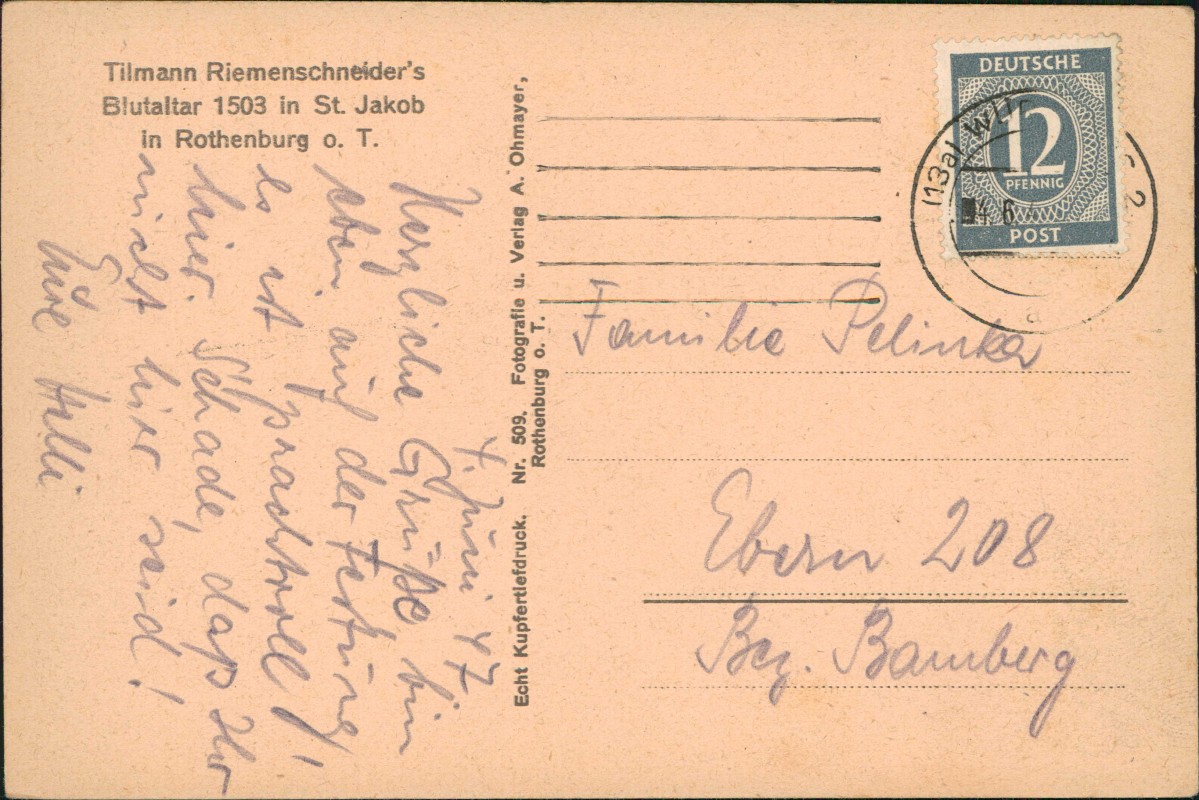 Tilmann Riemenschneider's
Blutaltar 1503 in St. Jakob
in Rothenburg o. T.
4. Juni 47
Herzliche Grüße bin
eben auf der Festung
es ist prachtvoll!
hier. Schade, daß Ihr
nicht hier seid!
Eure
Echt Kupfertiefdruck. Nr. 509. Fotografie u. Verlag A. Ohmayer,
Rothenburg o. T.
DEUTSCHE
12
PFENNIG
POST
(13a) WÜ
2
4.6
a
Familie Pelinka
Ebern 208
Bez. Bamberg